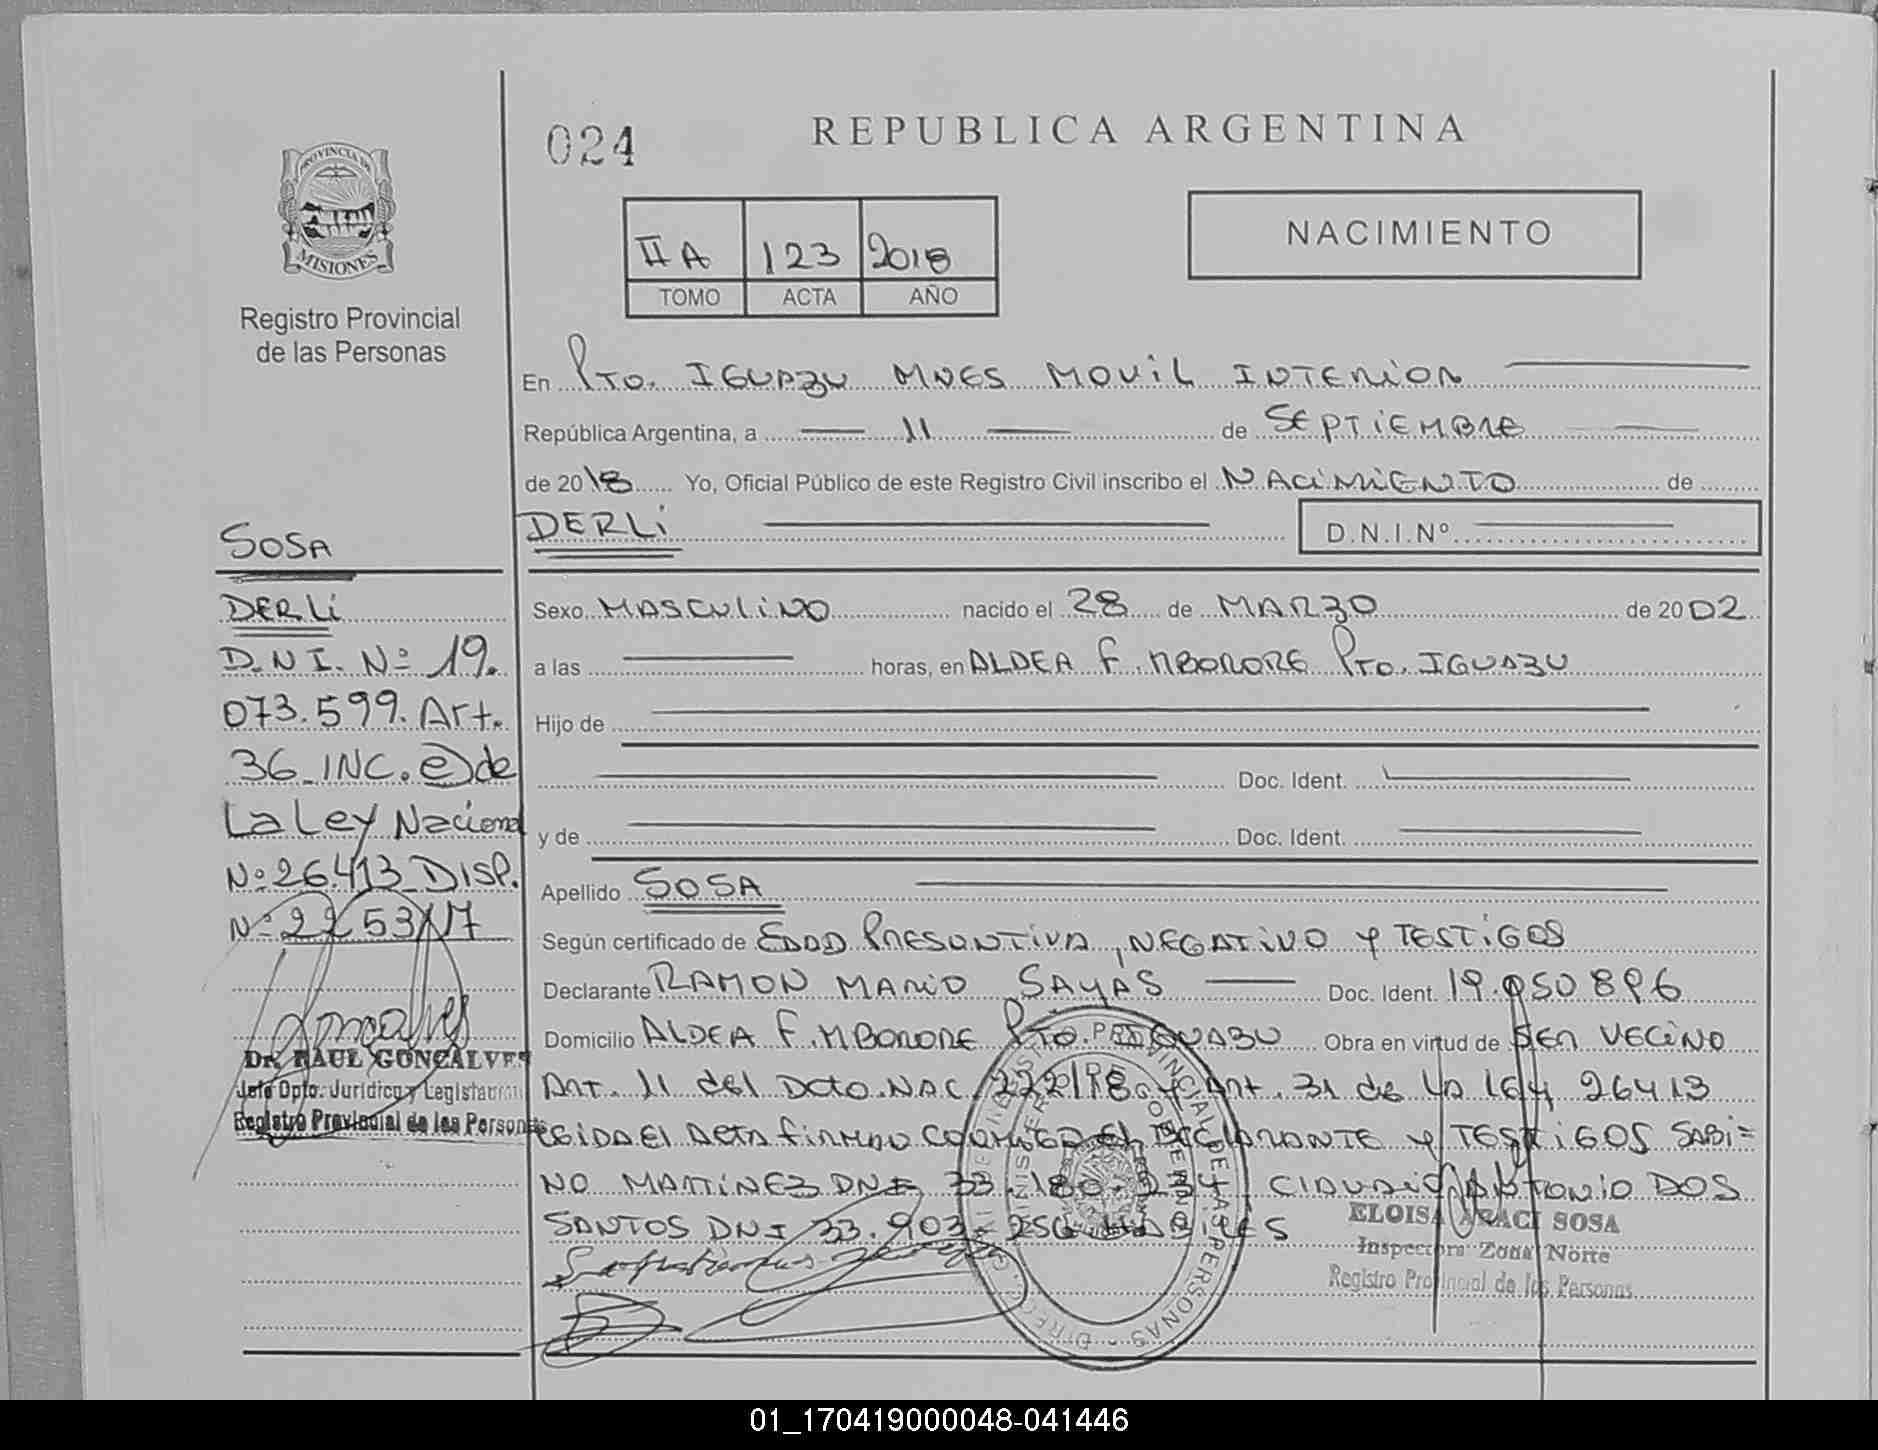 024
REPUBLICA ARGENTINA
PROVINCIA DE
MISIONES
Registro Provincial
de las Personas
II A 123 2018
TOMO ACTA AÑO
NACIMIENTO
En Pto. IGUAZU MNES MOVIL INTERIOR
República Argentina, a 11 de SEPTIEMBRE
de 2018 Yo, Oficial Público de este Registro Civil inscribo el NACIMIENTO de
DERLI
D.N.I.Nº
Sexo MASCULINO nacido el 28 de MARZO de 2002
a las horas, en ALDEA F. MBORORE Pto. IGUAZU
Hijo de
Doc. Ident.
y de Doc. Ident.
Apellido SOSA
Según certificado de EDAD PRESUNTIVA, NEGATIVO Y TESTIGOS
Declarante RAMON MARIO SAYAS Doc. Ident. 19.050896
Domicilio ALDEA F. MBORORE Pto. IGUAZU Obra en virtud de SER VECINO
ART. 11 del Dcto. NAC. 222/18 y Art. 31 de la ley 26413
LEIDA El ActA firman conmigo el DEClARANTE y TESTIGOS SABI=
NO MARTINEZ DNI 33.180.234, ClAUDIO ANTONIO DOS
SANTOS DNI 33.903.256 HABILES
ELOISA ARACI SOSA
Inspectora Zona Norte
Registro Provincial de las Personas
SOSA
DERLI
D.N.I. Nº 19.
073.599. Art.
36 INC. e) de
La Ley Nacional
Nº 26.413 DISP.
Nº 2253/17
Dr. RAUL GONCALVES
Jefe Dpto. Jurídico y Legislación
Registro Provincial de las Personas
01_170419000048-041446